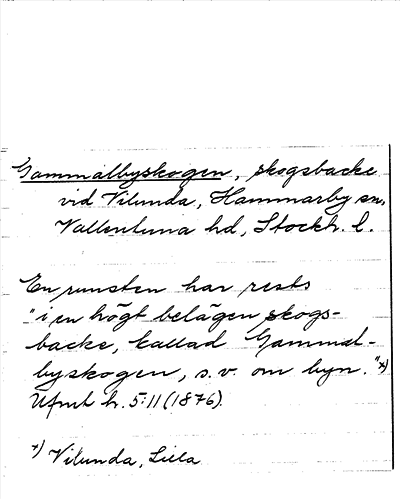 Gammalbyskogen, skogsbacke
vid Vilunda, Hammarby sn,
Vallentuna hd, Stockh. l.
En runsten har rests
"i en högt belägen skogs-
backe, kallad Gammal-
byskogen, s.v. om byn."x)
Ufmt h. 5:11 (1876).
x) Vilunda, Lilla